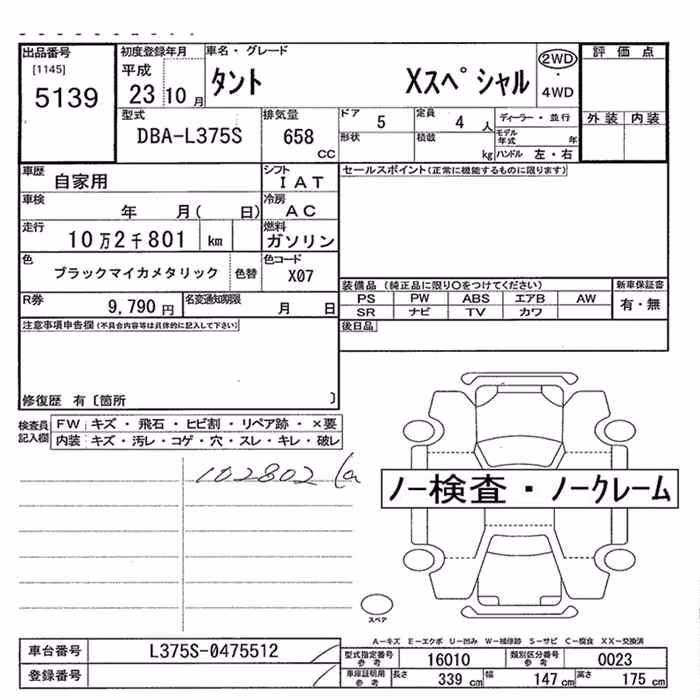 出品番号 初度登録年月 車名・グレード 評価点
[1145] 平成 2WD
5139 23 10月 タント Xスペシャル ・
4WD
型式 排気量 ドア 5 定員 4 人 ディーラー・並行 外装 内装
DBA-L375S 658 cc 形状 積載 kg モデル年式 年
ハンドル 左・右
車歴 自家用 シフト IAT セールスポイント(正常に機能するものに限ります)
車検 年 月( 日) 冷房 AC
走行 10万2千801 km 燃料 ガソリン
色 ブラックマイカメタリック 色替 色コード X07
装備品 (純正品に限り○をつけてください) 新車保証書
R券 9,790円 名変通知期限 月 日 PS PW ABS エアB AW 有・無
SR ナビ TV カワ
注意事項申告欄(不具合内容等は具体的に記入して下さい) 後日品
修復歴 有〔箇所 〕
検査員記入欄 FW キズ・飛石・ヒビ割・リペア跡・×要
内装 キズ・汚レ・コゲ・穴・スレ・キレ・破レ
102802
ノー検査・ノークレーム
スペア
A-キズ E-エクボ U-凹み W-補修跡 S-サビ C-腐食 XX-交換済
車台番号 L375S-0475512 型式指定番号 参考 16010 類別区分番号 参考 0023
登録番号 車庫証明用 参考 長さ 339 cm 幅 147 cm 高さ 175 cm